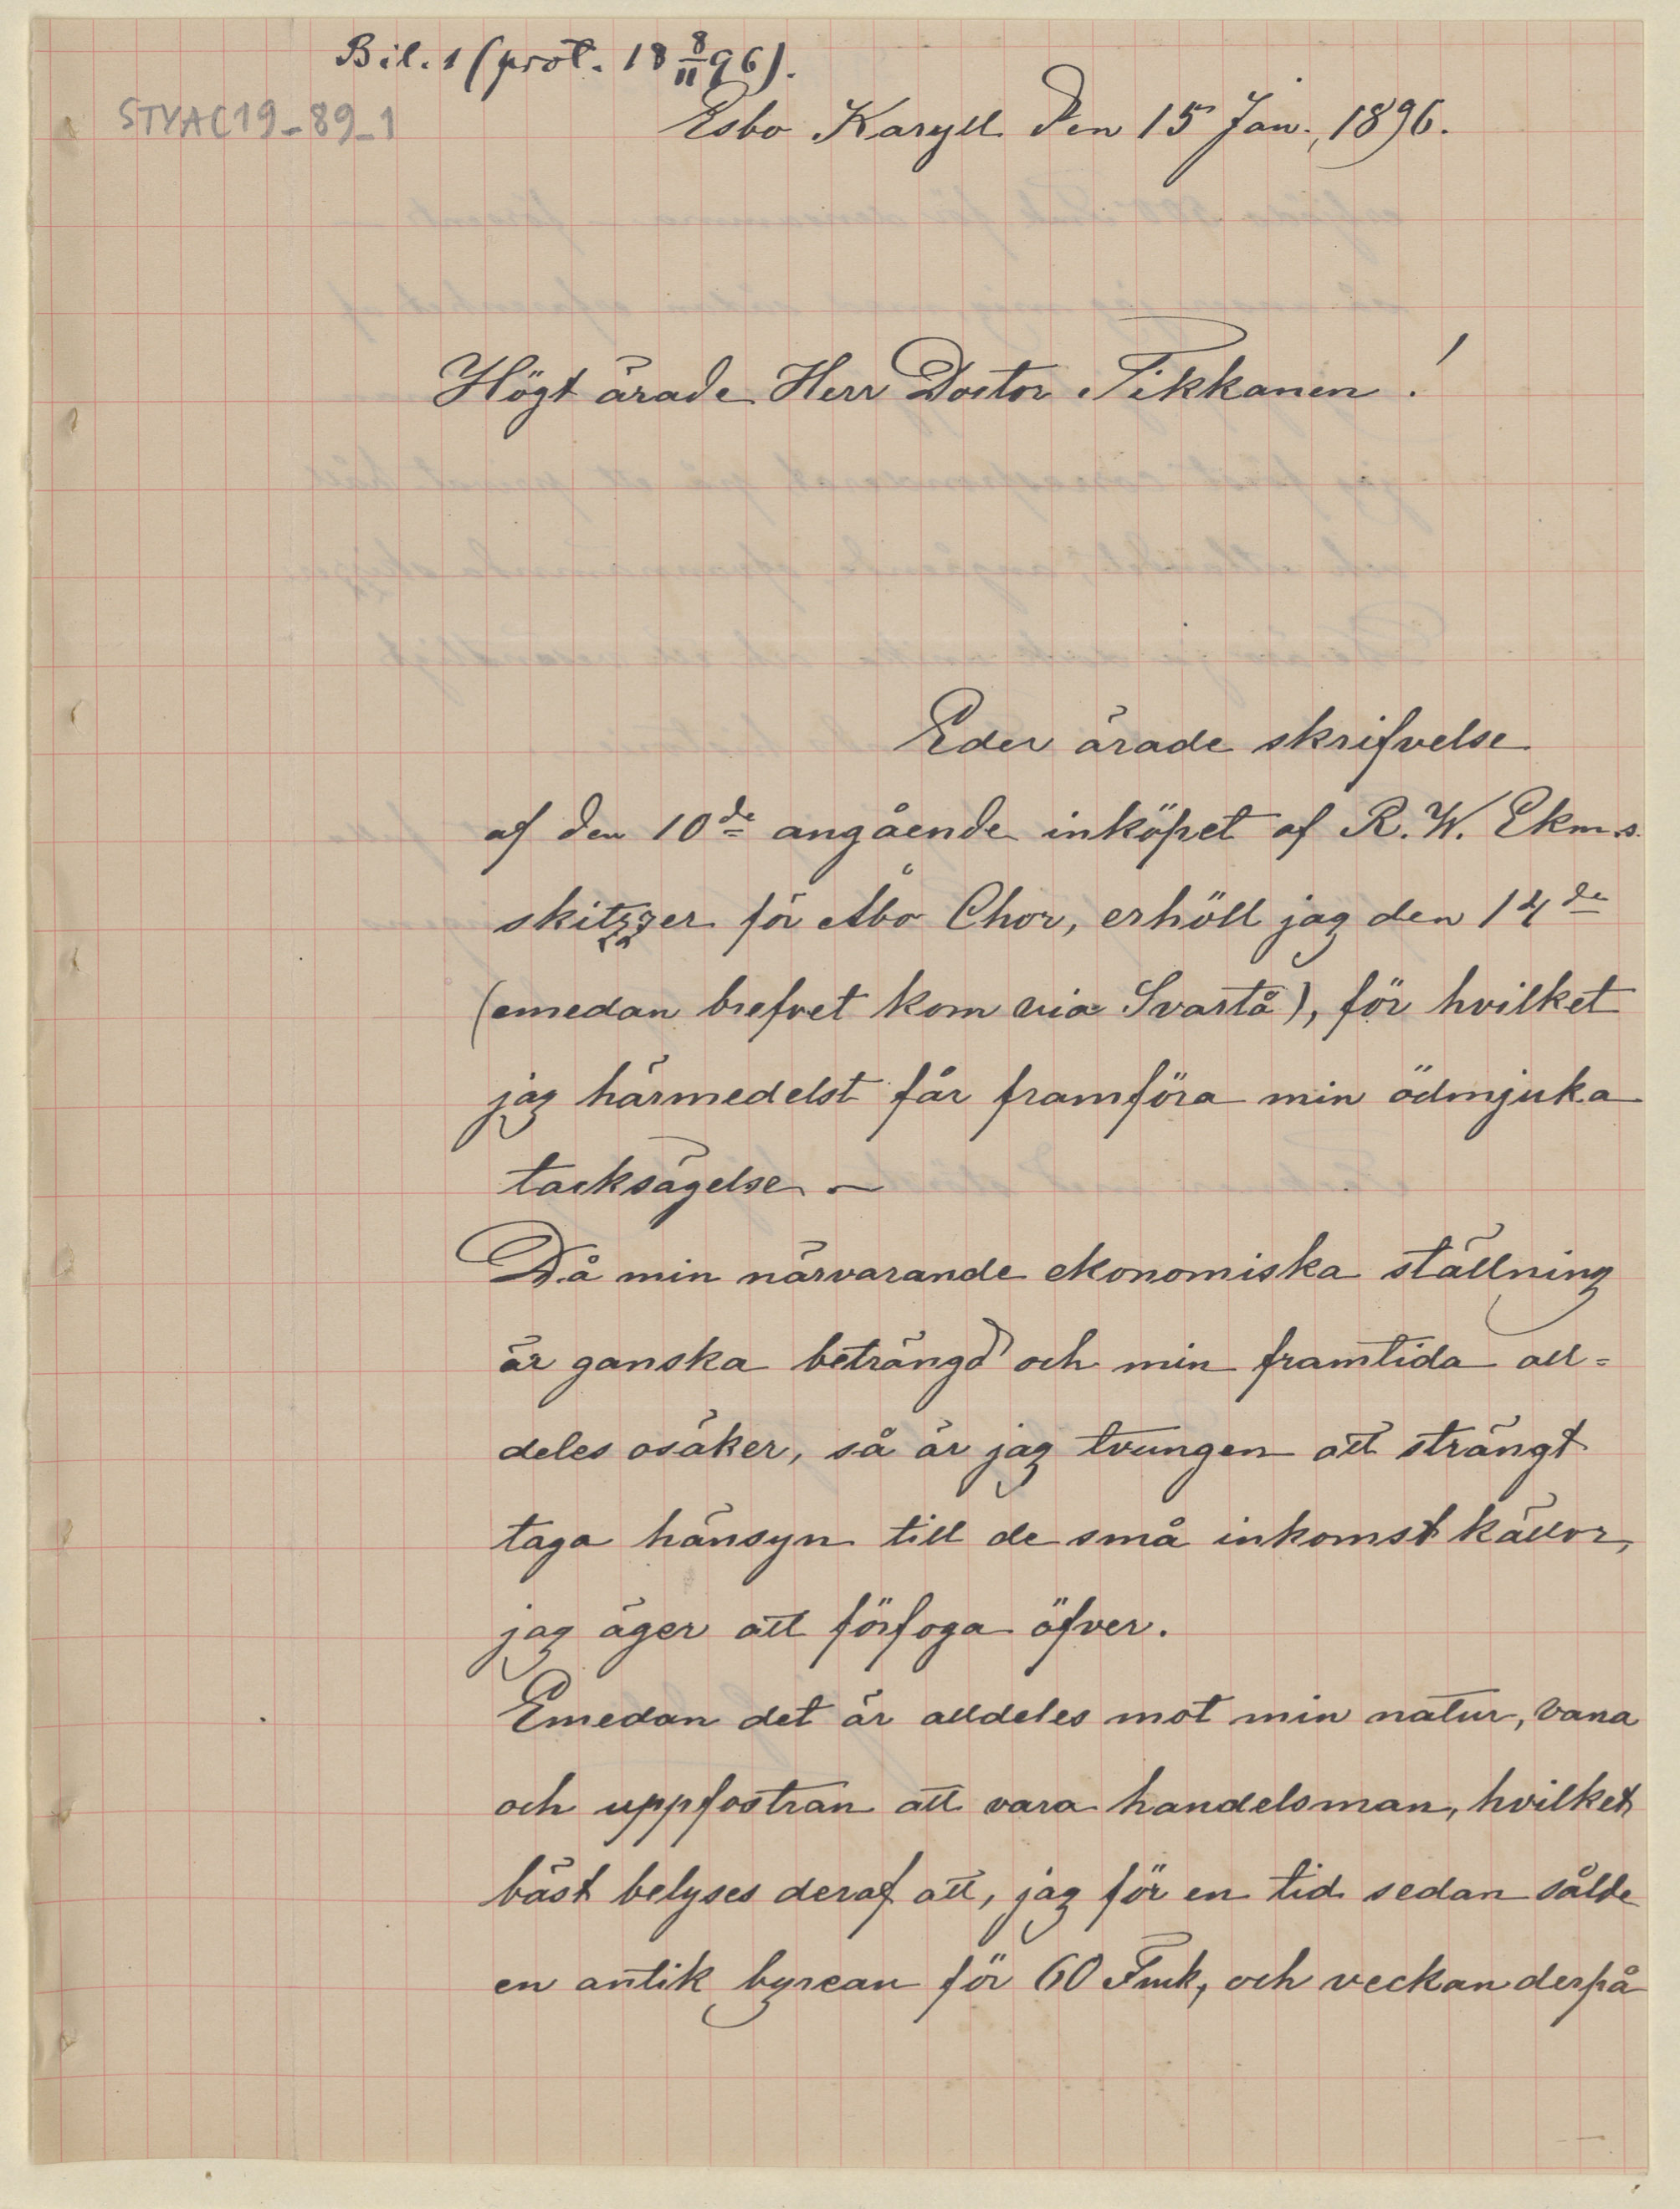 Bil. 1 (prot. 18 8/II 96).
STYAC19_89_1
Esbo Karyll den 15 Jan., 1896.
Högt ärade Herr Doctor Tikkanen!
Eder ärade skrifvelse
af den 10de angående inköpet af R. W. Ekm.s.
skitzzer för Åbo Chor, erhöll jag den 14de
(emedan brefvet kom via Svartå), för hvilket
jag härmedelst får framföra min ödmjuka
tacksägelse. —
Då min närvarande ekonomiska ställning
är ganska beträngd och min framtida all=
deles osäker, så är jag tvungen att strängt
taga hänsyn till de små inkomst källor,
jag äger att förfoga öfver.
Emedan det är alldeles mot min natur, vana
och uppfostran att vara handelsman, hvilket
bäst belyses deraf att, jag för en tid sedan sålde
en antik byrean för 60 Fmk, och veckan derpå